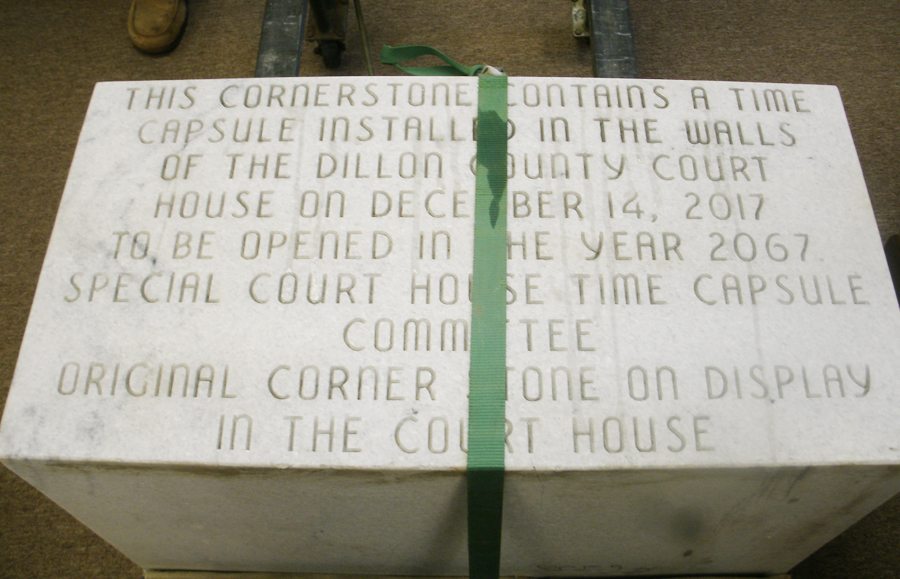 THIS CORNERSTONE CONTAINS A TIME
CAPSULE INSTALLED IN THE WALLS
OF THE DILLON COUNTY COURT
HOUSE ON DECEMBER 14, 2017
TO BE OPENED IN THE YEAR 2067
SPECIAL COURT HOUSE TIME CAPSULE
COMMITTEE
ORIGINAL CORNER STONE ON DISPLAY
IN THE COURT HOUSE